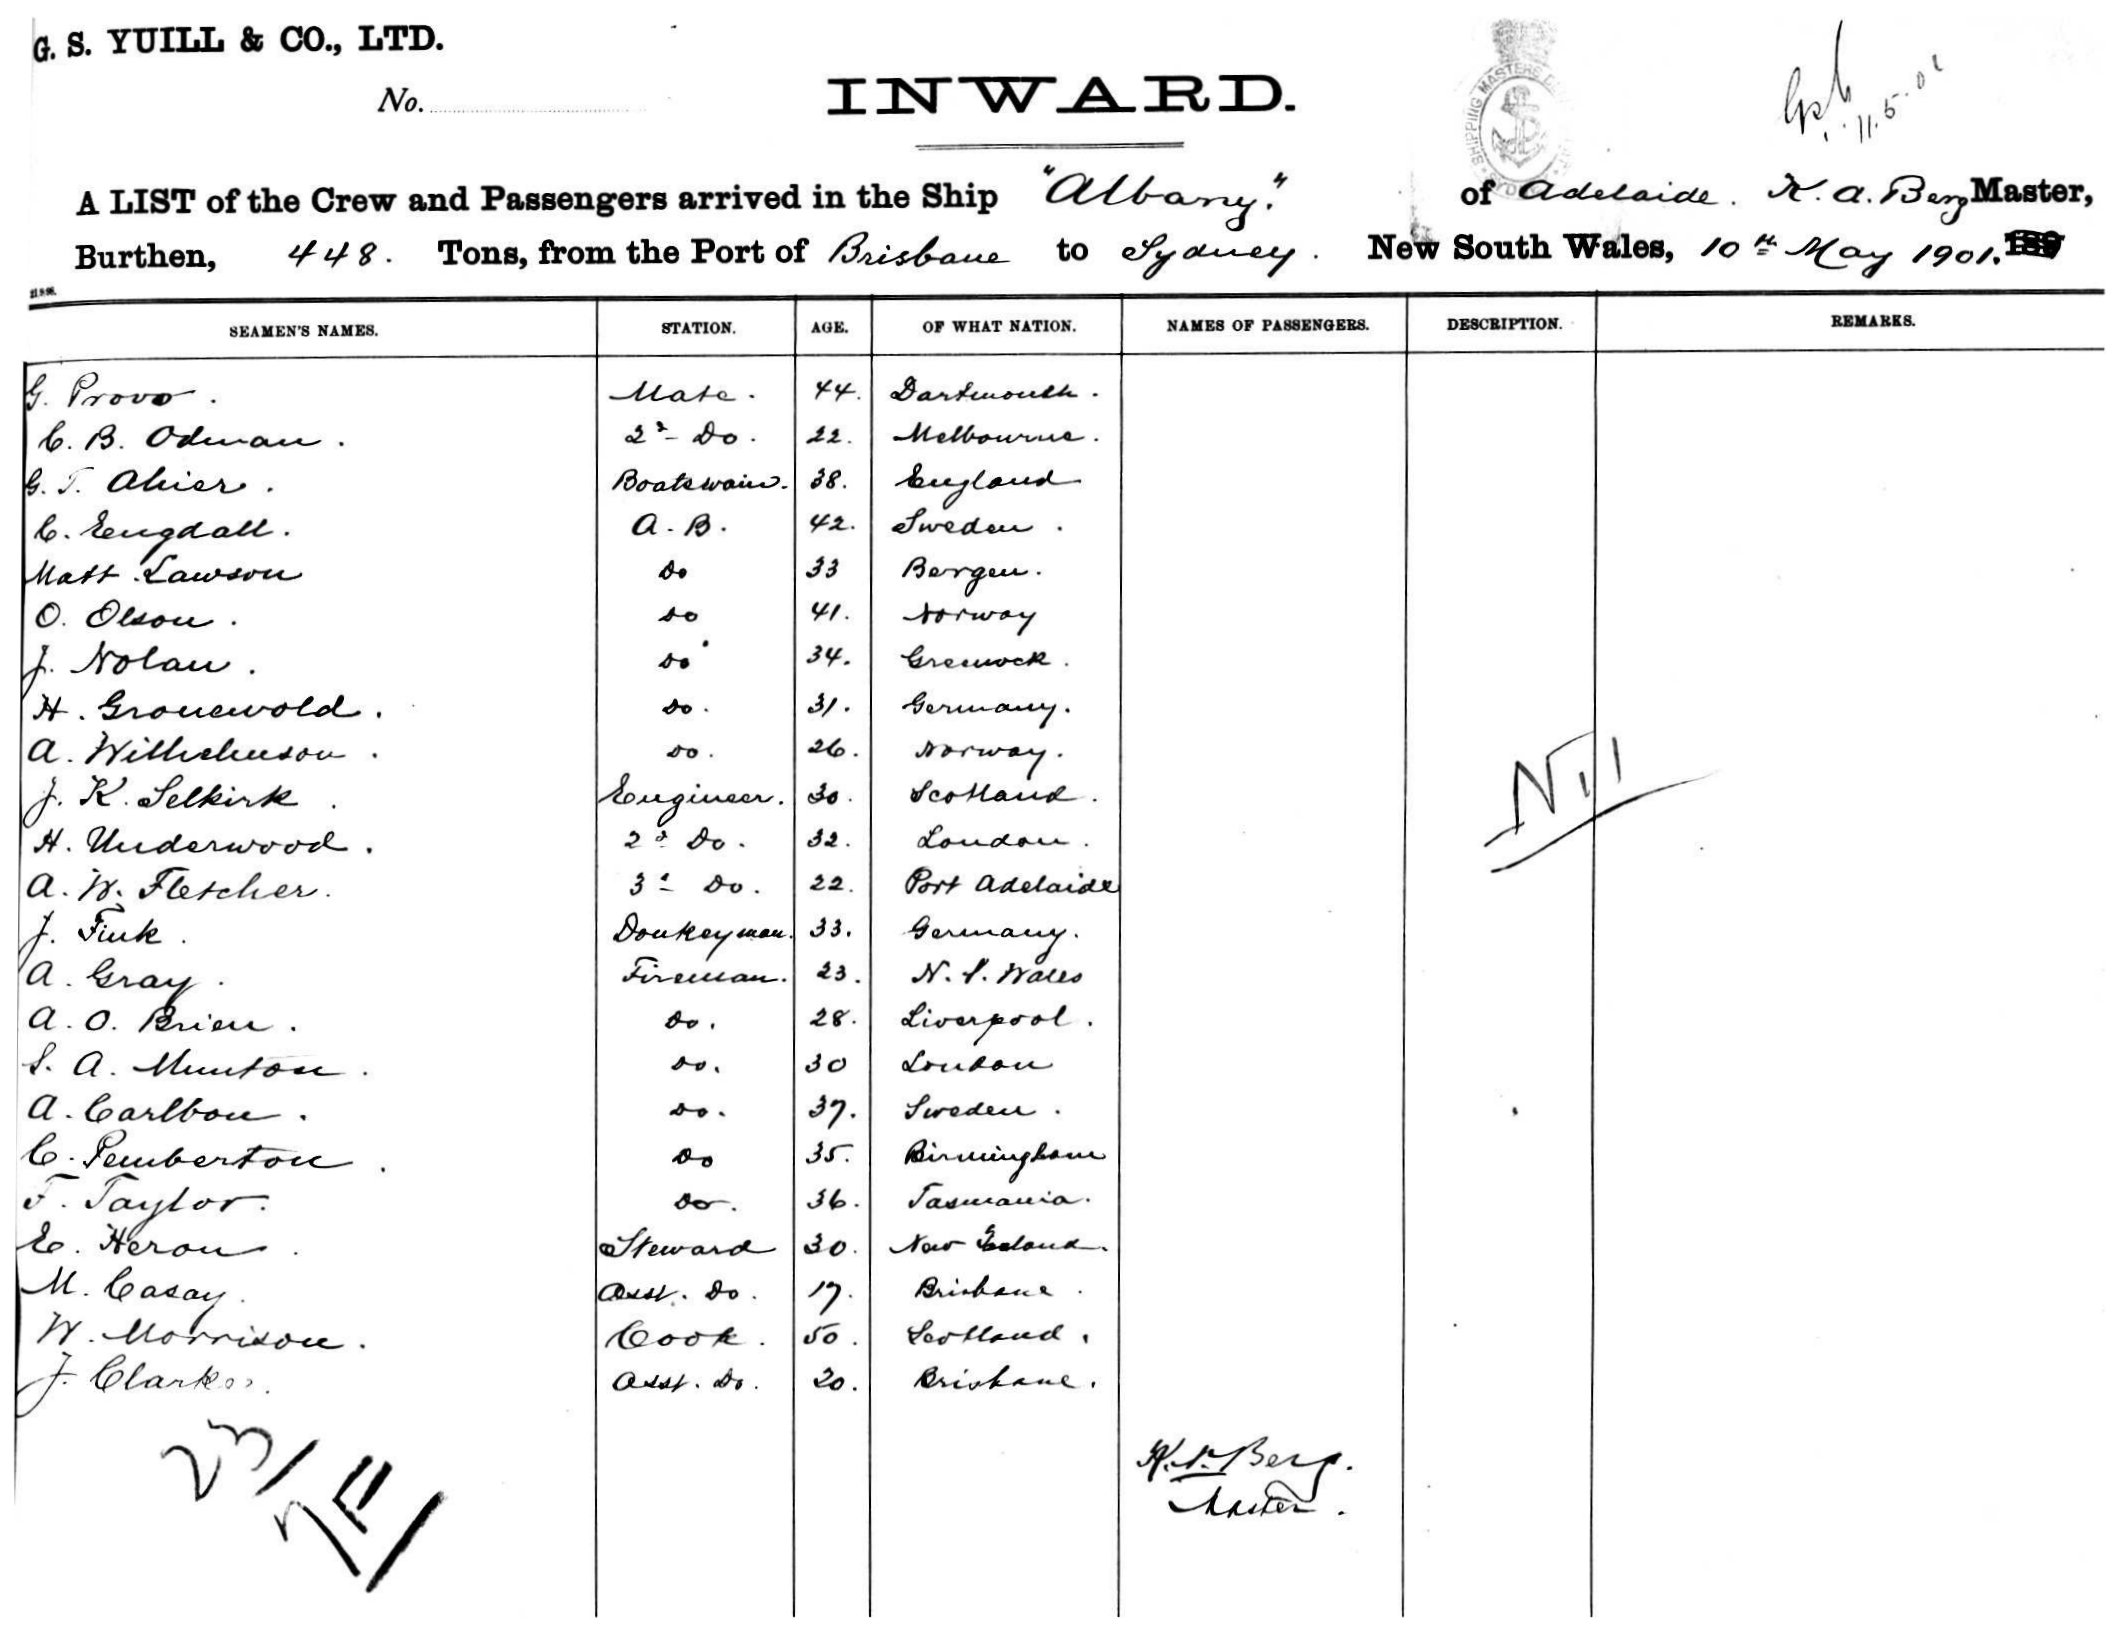 G. S. YUILL & CO., LTD.
No.
INWARD.
SHIPPING MASTERS
11.5.01
A LIST of the Crew and Passengers arrived in the Ship "Albany." of Adelaide. K. A. Berg Master,
Burthen, 448. Tons, from the Port of Brisbane to Sydney. New South Wales, 10th May 1901. 189
21.9.98.
SEAMEN'S NAMES. STATION. AGE. OF WHAT NATION. NAMES OF PASSENGERS. DESCRIPTION. REMARKS.
G. Provo. Mate. 44. Dartmouth.
C. B. Odman. 2d Do. 22. Melbourne.
G. T. Ahier. Boatswain. 38. England
C. Engdall. A. B. 42. Sweden.
Matt Lawson Do 33 Bergen.
O. Olson. Do 41. Norway
J. Nolan. Do 34. Greenock.
H. Gronewold. Do. 31. Germany.
A. Wilhelmson. Do. 26. Norway.
J. K. Selkirk. Engineer. 30. Scotland.
H. Underwood. 2d Do. 32. London.
A. W. Fletcher. 3d Do. 22. Port Adelaide
J. Fink. Donkeyman. 33. Germany.
A. Gray. Fireman. 23. N. S. Wales
A. O. Brien. Do. 28. Liverpool.
S. A. Munton. Do. 30 London
A. Carlbon. Do. 37. Sweden.
C. Pemberton. Do 35. Birmingham
F. Taylor. Do. 36. Tasmania.
E. Heron. Steward 30. New Zealand.
M. Casay. Asst. Do. 17. Brisbane.
W. Morrison. Cook. 50. Scotland.
J. Clarke. Asst. Do. 20. Brisbane.
Nil
23/
K. A. Berg.
Master.